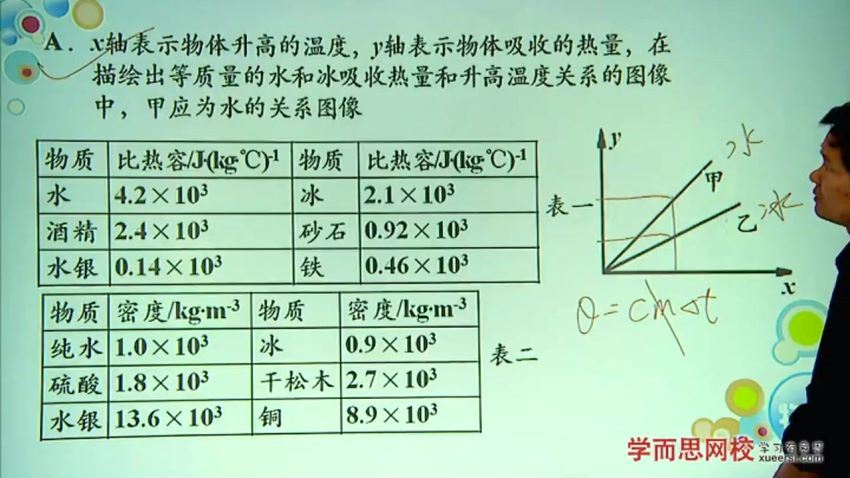 A．x轴表示物体升高的温度，y轴表示物体吸收的热量，在
描绘出等质量的水和冰吸收热量和升高温度关系的图像
中，甲应为水的关系图像
物质 比热容/J·(kg·℃)-1 物质 比热容/J·(kg·℃)-1
水 4.2×10³ 冰 2.1×10³
酒精 2.4×10³ 砂石 0.92×10³
水银 0.14×10³ 铁 0.46×10³
表一
y
甲 水
乙 冰
x
Q=cmΔt
物质 密度/kg·m-3 物质 密度/kg·m-3
纯水 1.0×10³ 冰 0.9×10³
硫酸 1.8×10³ 干松木 2.7×10³
水银 13.6×10³ 铜 8.9×10³
表二
学而思网校
xueersi.com